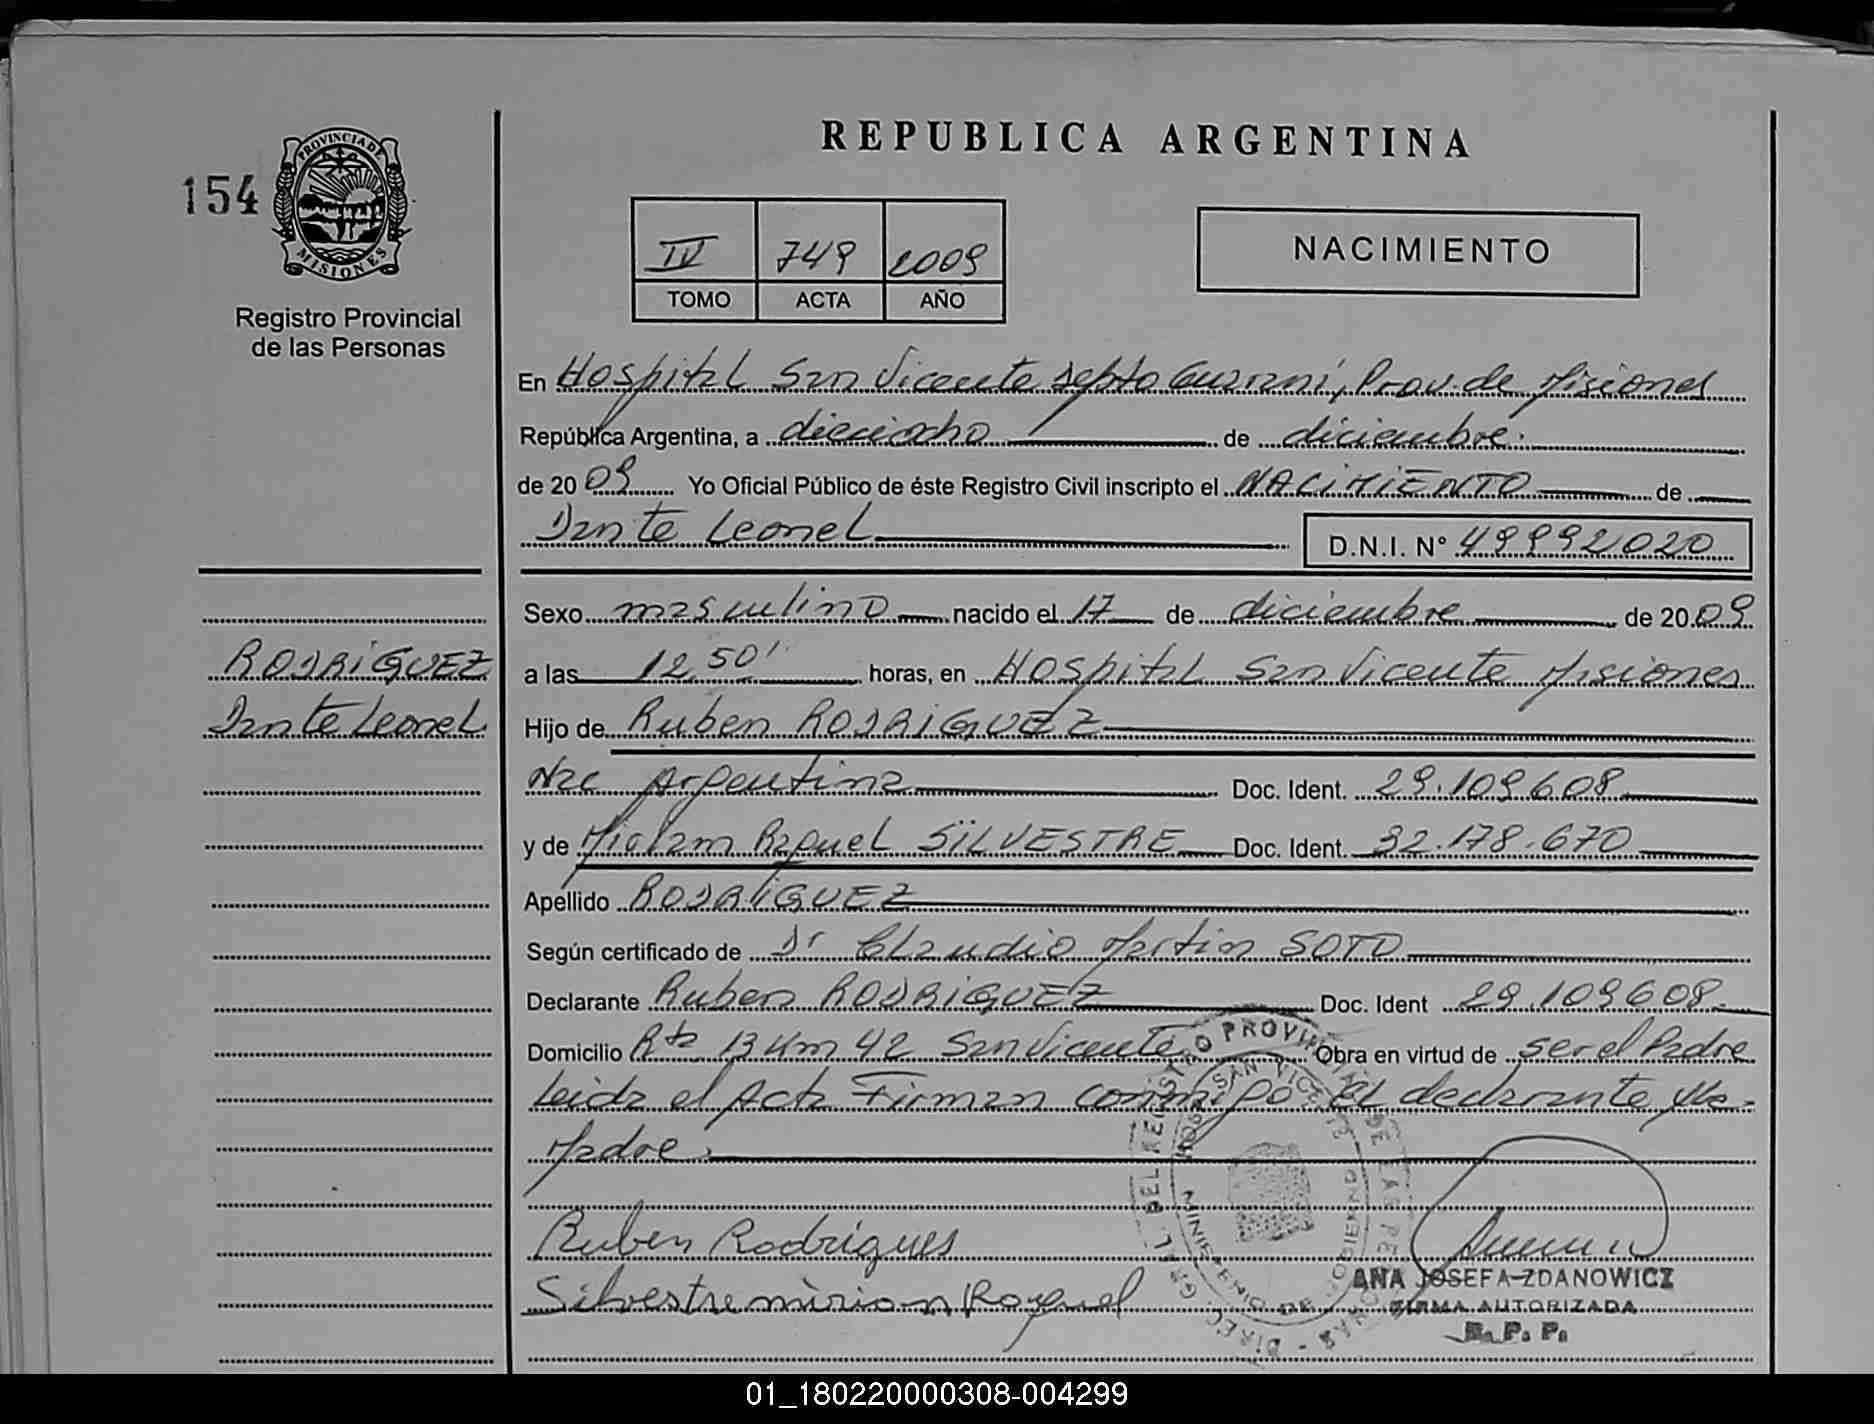 REPUBLICA ARGENTINA
154
PROVINCIA DE
MISIONES
Registro Provincial
de las Personas
IV 749 2009
TOMO ACTA AÑO
NACIMIENTO
En Hospital San Vicente depto Guaraní, Prov. de Misiones
República Argentina, a dieciocho de diciembre
de 2009 Yo Oficial Público de éste Registro Civil inscripto el NACIMIENTO de
Dante Leonel
D.N.I. N° 49992020
Sexo masculino nacido el 17 de diciembre de 2009
RODRIGUEZ
Dante Leonel
a las 12,50' horas, en Hospital San Vicente Misiones
Hijo de Ruben RODRIGUEZ
Nac Argentina Doc. Ident. 29.109608
y de Miriam Raquel SILVESTRE Doc. Ident. 32.178.670
Apellido RODRIGUEZ
Según certificado de Dr Claudio Martin SOTO
Declarante Ruben RODRIGUEZ Doc. Ident 29.109608
Domicilio Rta 13 Km 42 San Vicente Obra en virtud de ser el Padre
Leida el Acta Firman conmigo el declarante y la
Madre
Ruben Rodrigues
Silvestre mirian Raquel
DIREC. GRAL. DEL REGISTRO PROVINCIAL DE LAS PERSONAS
HOSP. SAN VICENTE
MINISTERIO DE GOBIERNO
ANA JOSEFA ZDANOWICZ
FIRMA AUTORIZADA
R. P. P.
01_180220000308-004299